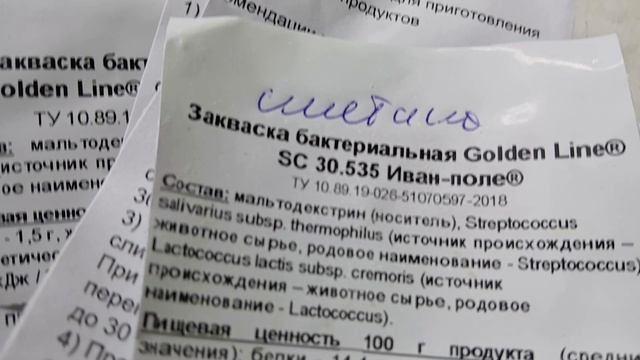 1)
для приготовления
продуктов
Закваска
Golden Line®
ТУ 10.89.1
мальтоде
источник
- 1,5 г,
3)
При
до 30
4)
сметана
Закваска бактериальная Golden Line®
SC 30.535 Иван-поле®
ТУ 10.89.19-026-51070597-2018
Состав: мальтодекстрин (носитель), Streptococcus
salivarius subsp. thermophilus (источник происхождения –
животное сырье, родовое наименование - Streptococcus)
Lactococcus lactis subsp. cremoris (источник
происхождения – животное сырье, родовое
наименование - Lactococcus).
Пищевая ценность 100 г продукта
значения): белки